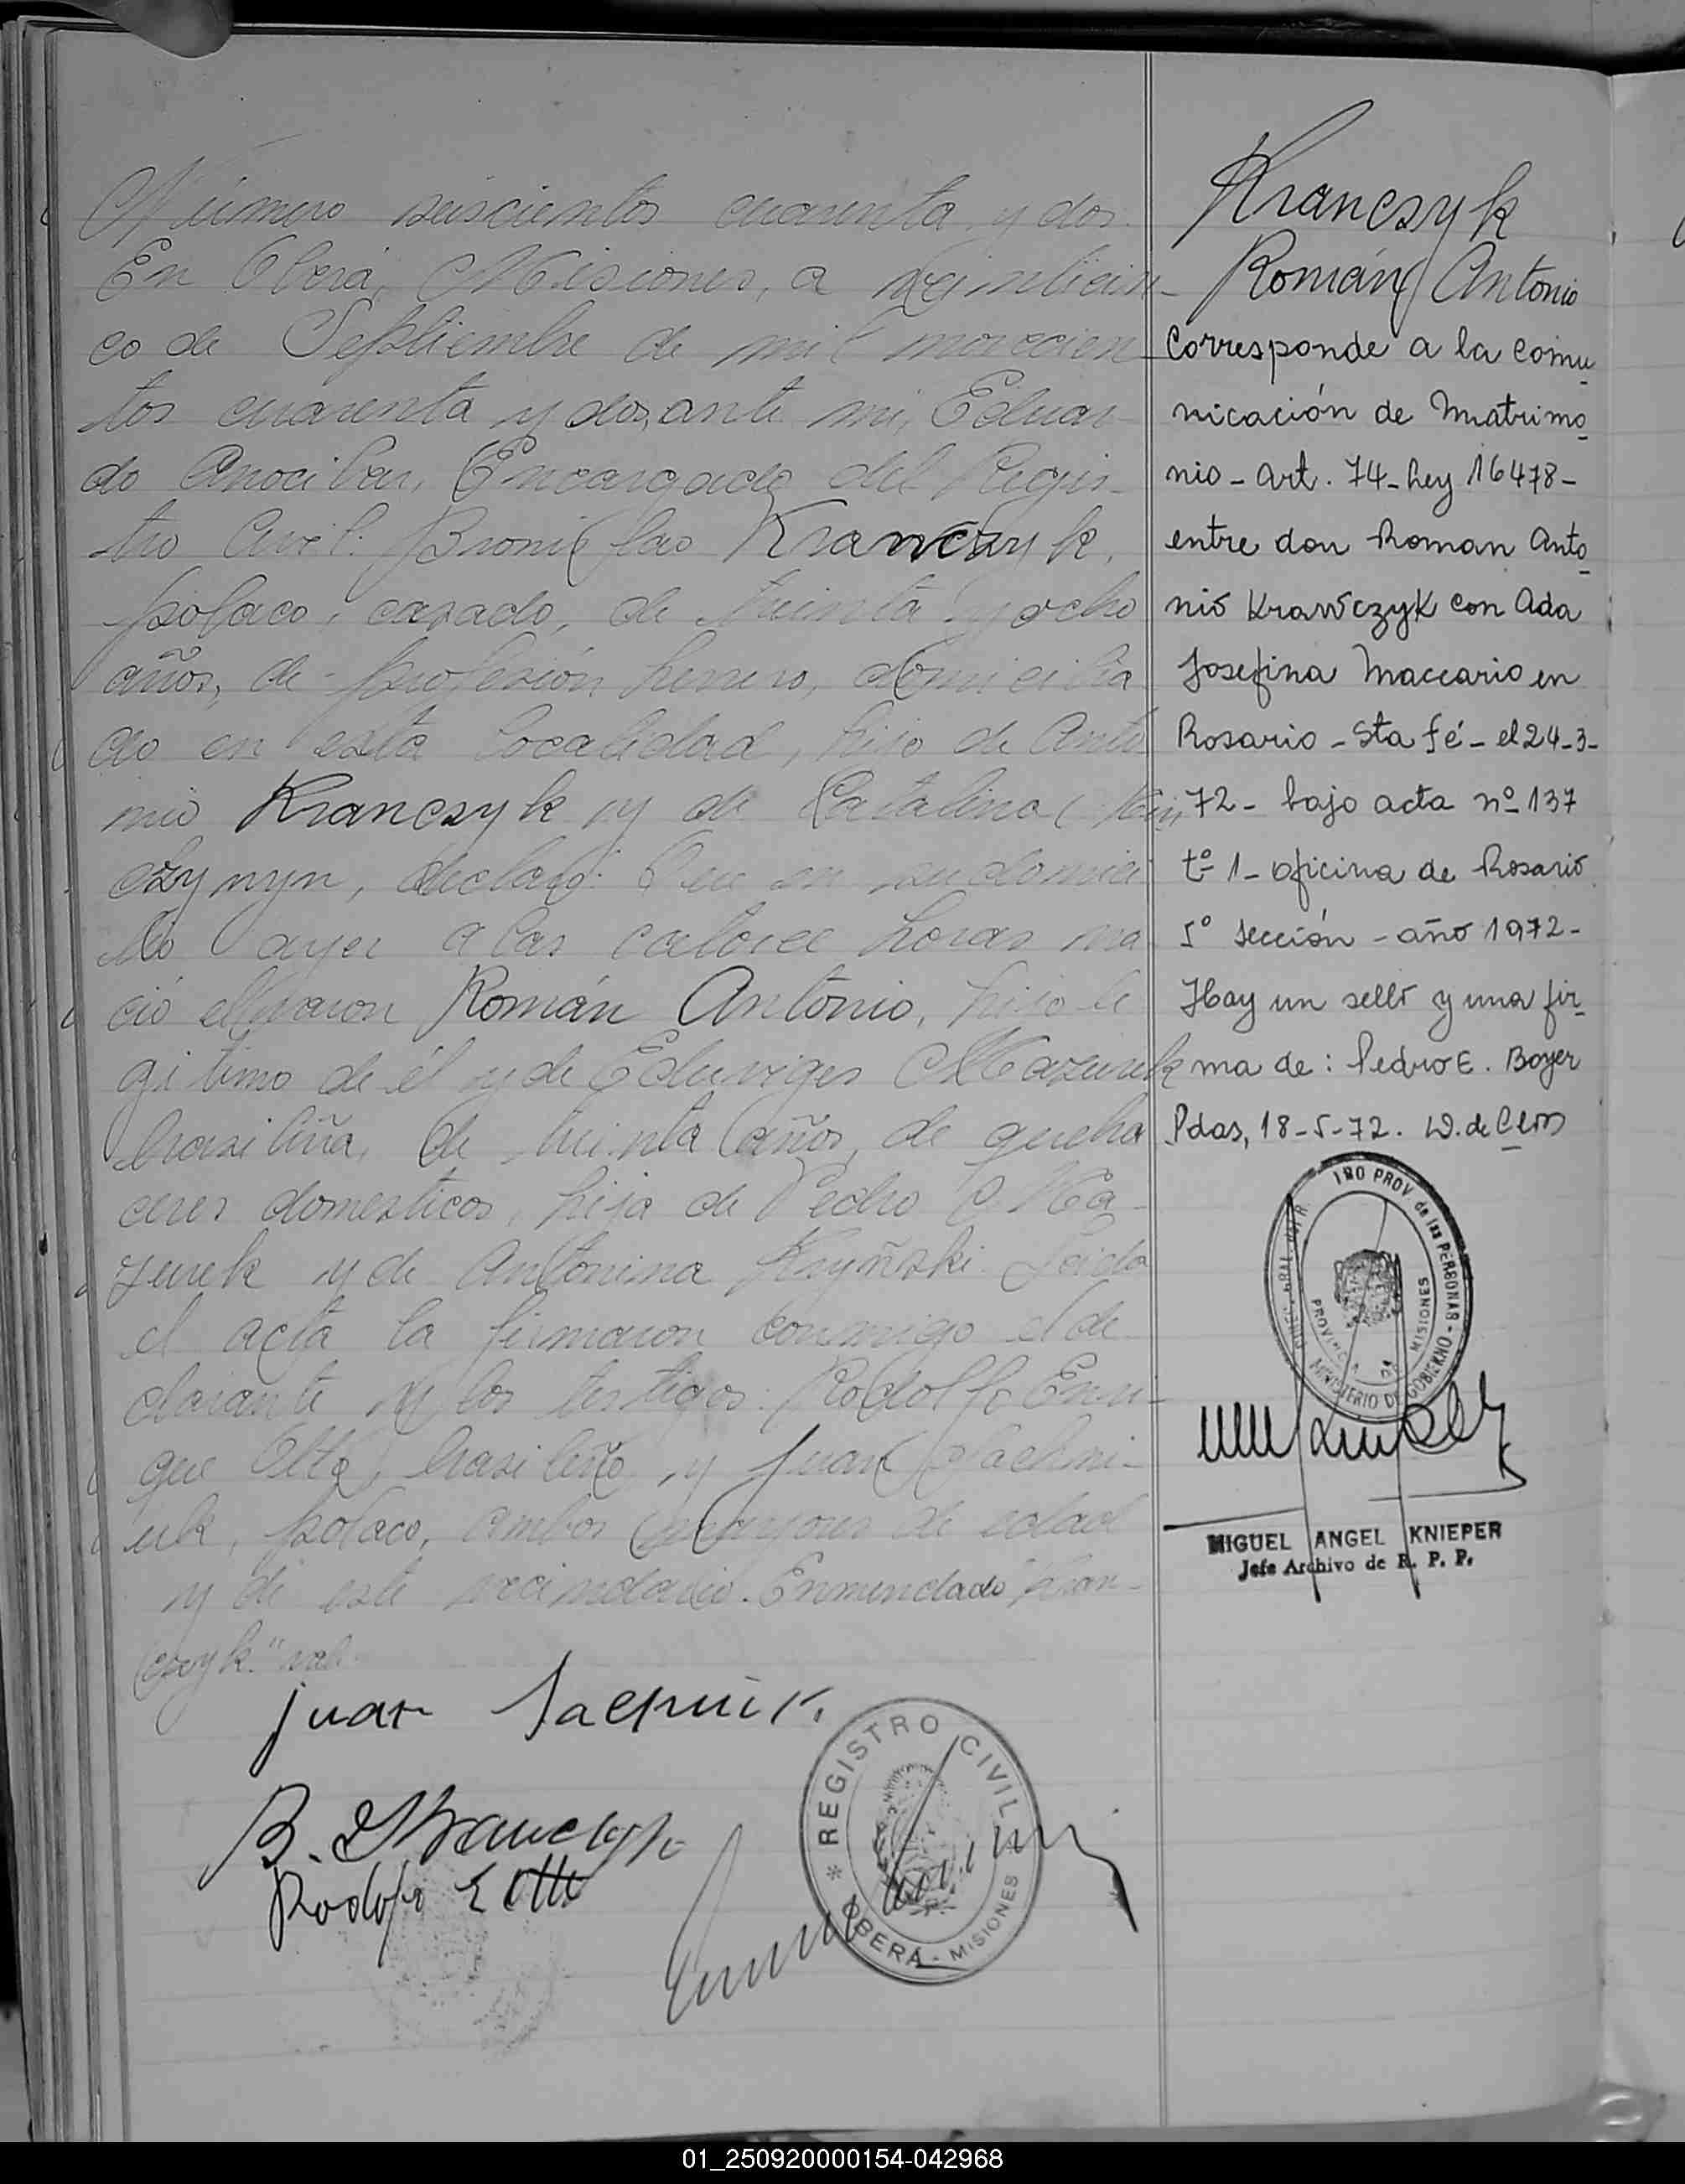 Número seiscientos cuarenta y dos.
En Oberá, Misiones, a veinticin-
co de Septiembre de mil novecien
tos cuarenta y dos, ante mi, Eduar-
do Anocibar, Encargado del Regis-
tro Civil: Bronislao Kranczyk,
polaco, casado, de treinta y ocho
años, de profesión herrero, domicilia
do en esta localidad, hijo de Anto
nio Kranczyk y de Catalina
declaró: Que en su domici
lio ayer a las catorce horas na
ció el varon Román Antonio, hijo le
gitimo de él y de Eduviges Mazurek
brasileña, de treinta años, de queha
ceres domesticos, hija de Pedro Ma-
zurek y de Antonina Leida
el acta la firmaron conmigo el de
clarante y los testigos: Rodolfo Enri-
que Otto, brasileño y Juan
polaco, ambos mayores de edad
y de este vecindario. Enmendado "Kran-
czyk." vale.
Juan
B. Krawczyk
Rodolfo E Otto
* REGISTRO CIVIL *
OBERÁ - MISIONES
Kranczyk
Román Antonio
Corresponde a la comu
nicación de Matrimo
nio - Art. 74 - Ley 16478 -
entre don Roman Anto
nio Krawczyk con Ada
Josefina Maccario en
Rosario - Sta fé - el 24-3-
72 - bajo acta nº 137
tº 1 - oficina de Rosario
5º sección - año 1972 -
Hay un sello y una fir
ma de: Pedro E. Boyer
Pdas, 18-5-72.
PROV de las PERSONAS
MINISTERIO DE GOBIERNO
PROVINCIA DE MISIONES
MIGUEL ANGEL KNIEPER
Jefe Archivo de R. P. P.
01_250920000154-042968